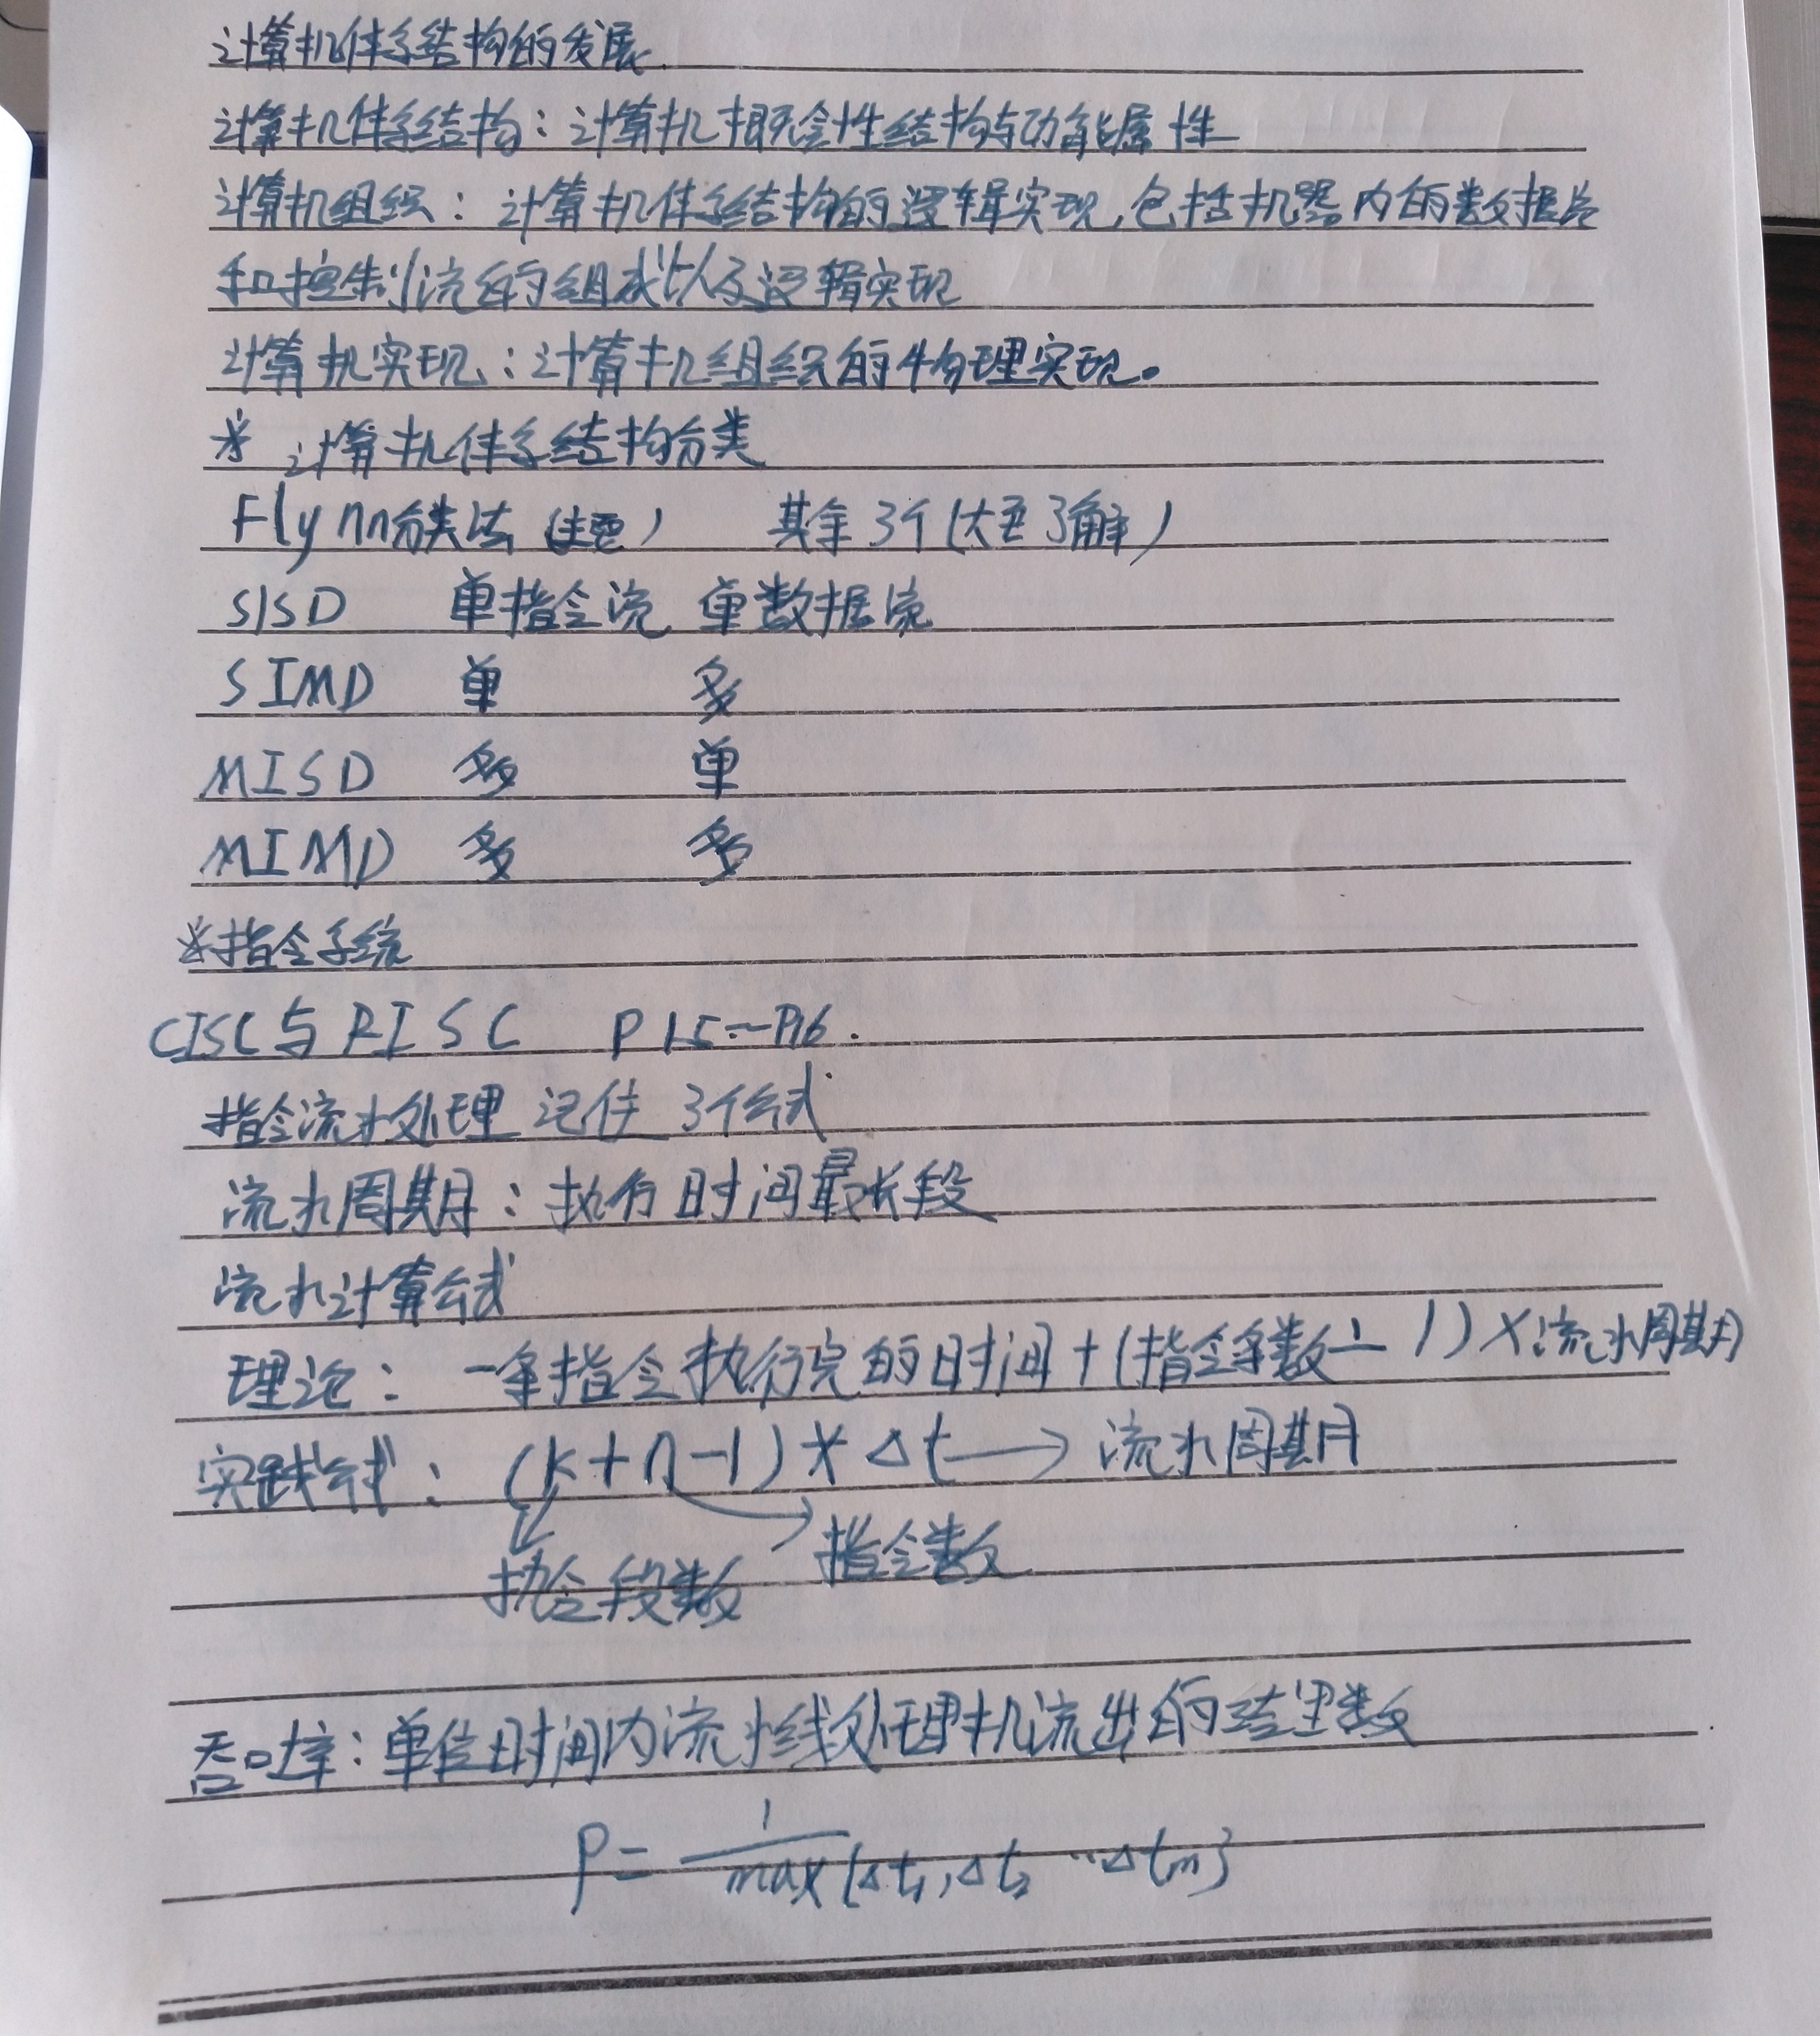 计算机体系结构的发展
计算机体系结构：计算机概念性结构与功能属性
计算机组织：计算机体系结构的逻辑实现，包括机器内的数据流
和控制流的组成以及逻辑实现
计算机实现：计算机组织的物理实现。
※ 计算机体系结构分类
Flynn分类法（主要） 其余3个（大致了解）
SISD 单指令流 单数据流
SIMD 单 多
MISD 多 单
MIMD 多 多
※指令系统
CISC与RISC P15~P16.
指令流水处理 记住 3个公式
流水周期：执行时间最长段
流水计算公式
理论：一条指令执行完的时间+(指令条数-1)×流水周期
实践公式：(k+n-1)×Δt→流水周期
指令数
执令段数
吞吐率：单位时间内流水线处理机流出的结果数
P= 1/max{Δt1,Δt2…Δtm}